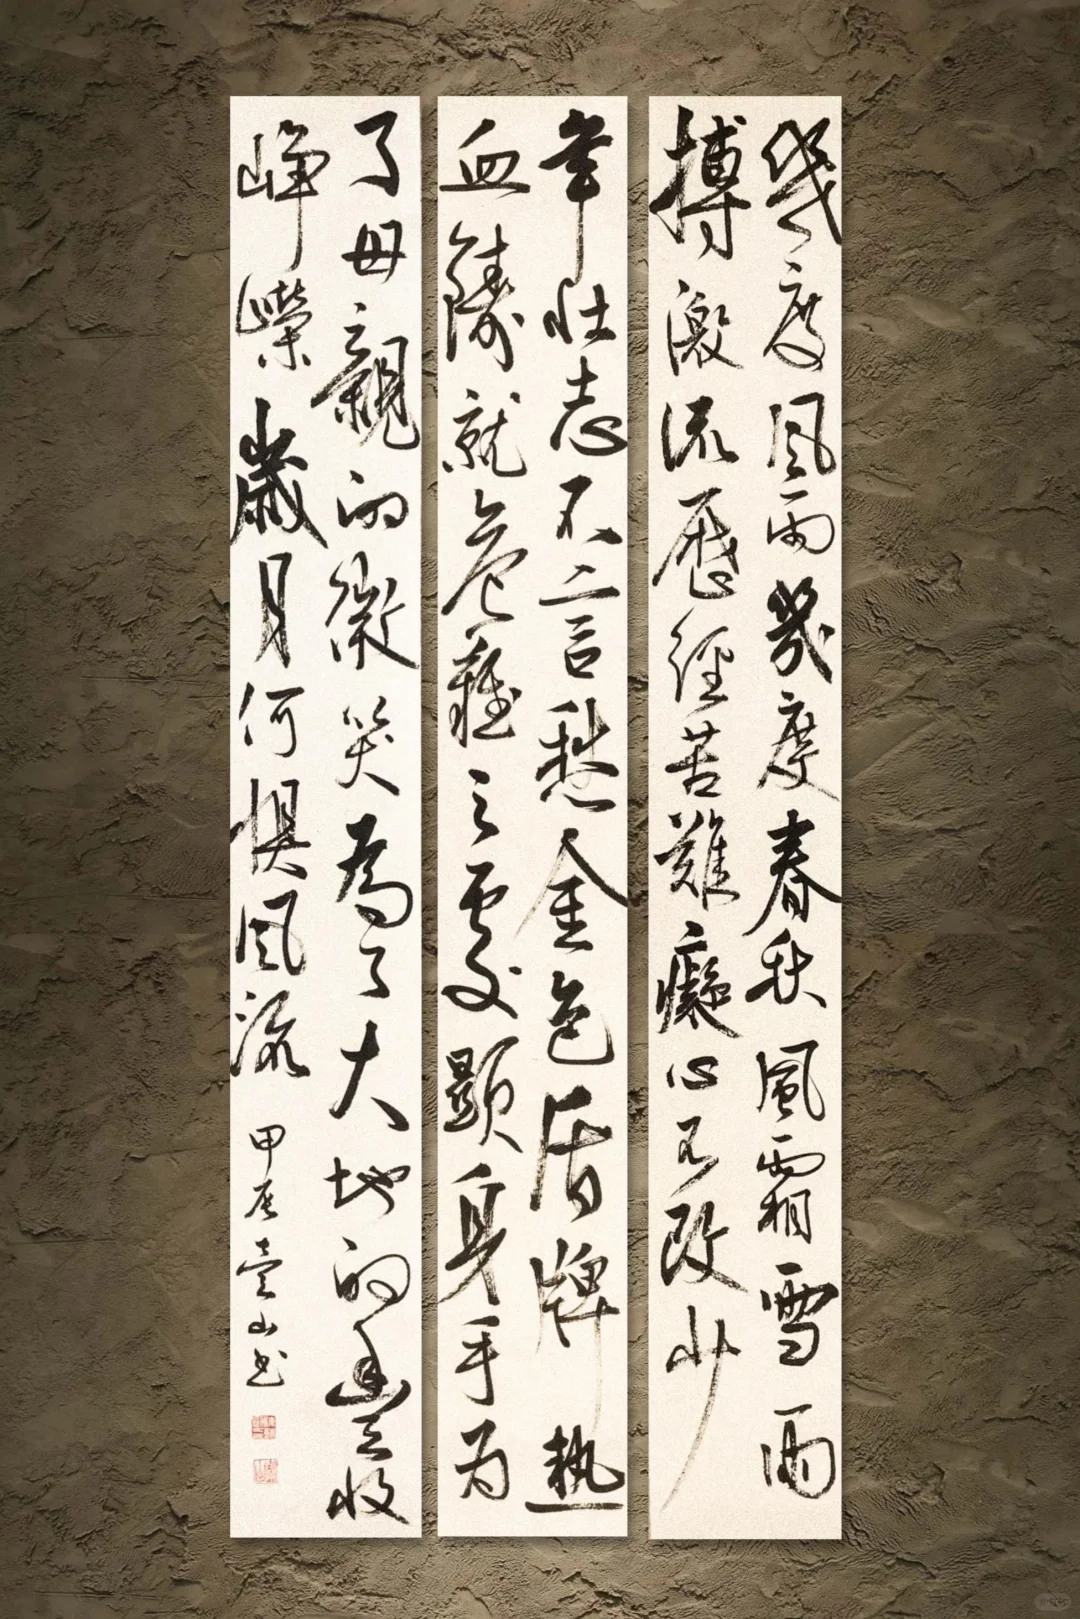 幾度风雨幾度春秋風霜雪雨
搏激流歷經苦難癡心不改少
年壯志不言愁金色盾牌熱
血鑄就危難之處顯身手为
了母親的微笑為了大地的豐收
崢嶸歲月何惧风流
甲辰山书